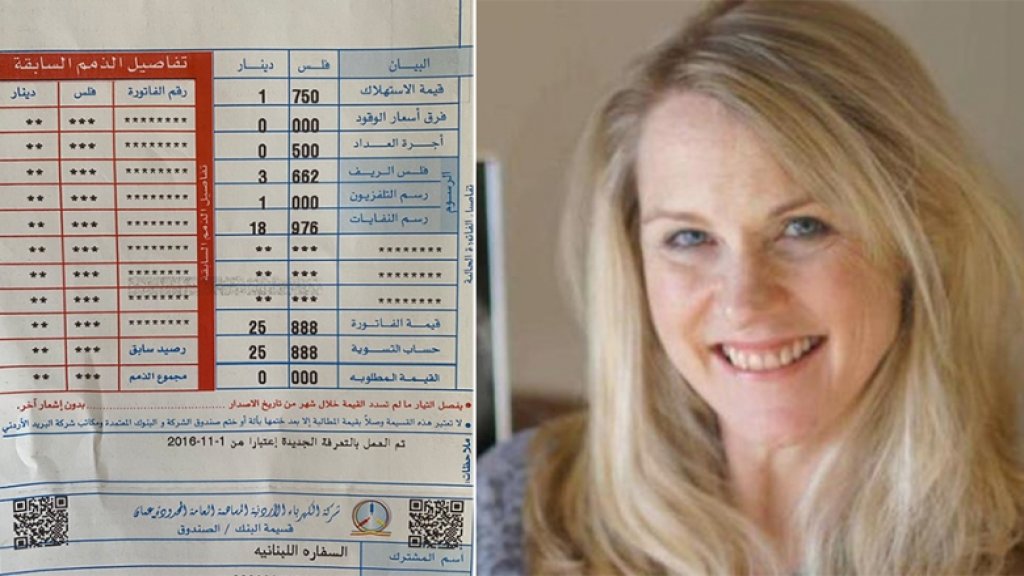 البيان فلس دينار
قيمة الاستهلاك 750 1
فرق أسعار الوقود 000 0
أجرة العداد 500 0
فلس الريف 662 3
رسم التلفزيون 000 1
رسم النفايات 976 18
******** *** **
******** *** **
******** *** **
قيمة الفاتورة 888 25
حساب التسوية 888 25
القيمة المطلوبه 000 0
الرسوم
تفاصيل الفاتورة الحالية
تفاصيل الذمم السابقة
رقم الفاتورة فلس دينار
******** *** **
******** *** **
******** *** **
******** *** **
******** *** **
******** *** **
******** *** **
******** *** **
******** *** **
رصيد سابق *** **
مجموع الذمم *** **
تفاصيل الذمم السابقة
• يفصل التيار ما لم تسدد القيمة خلال شهر من تاريخ الاصدار ........................ بدون إشعار آخر.
• لا تعتبر هذه القسيمة وصلاً بقيمة المطالبة إلا بعد ختمها بآلة أو ختم صندوق الشركة و البنوك المعتمدة ومكاتب شركة البريد الأردني
ملاحظات:
تم العمل بالتعرفة الجديدة إعتبارا من 1-11-2016
شركة الكهرباء الأردنية المساهمة العامة المحدودة عمان
قسيمة البنك / الصندوق
اسم المشترك السفاره اللبنانيه